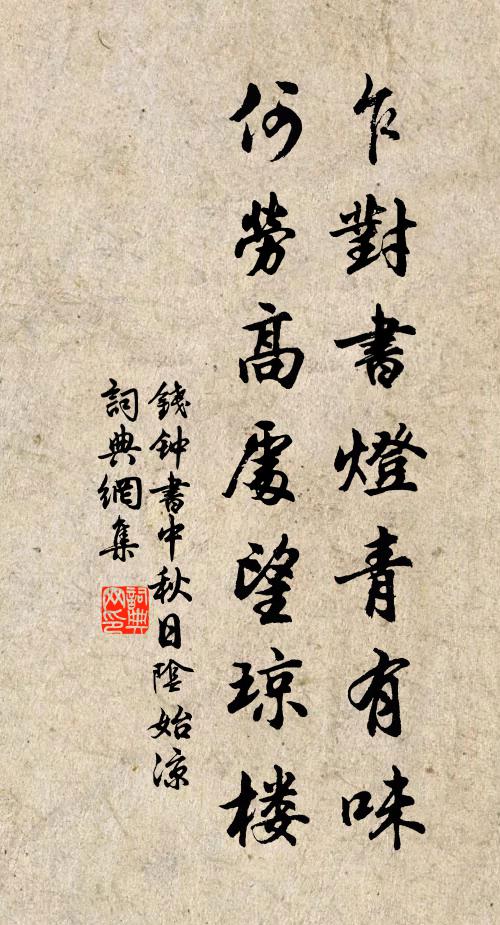 乍對書燈青有味
何勞高處望琼楼
錢钟書中秋日陰始涼
詞典網集
詞典网印